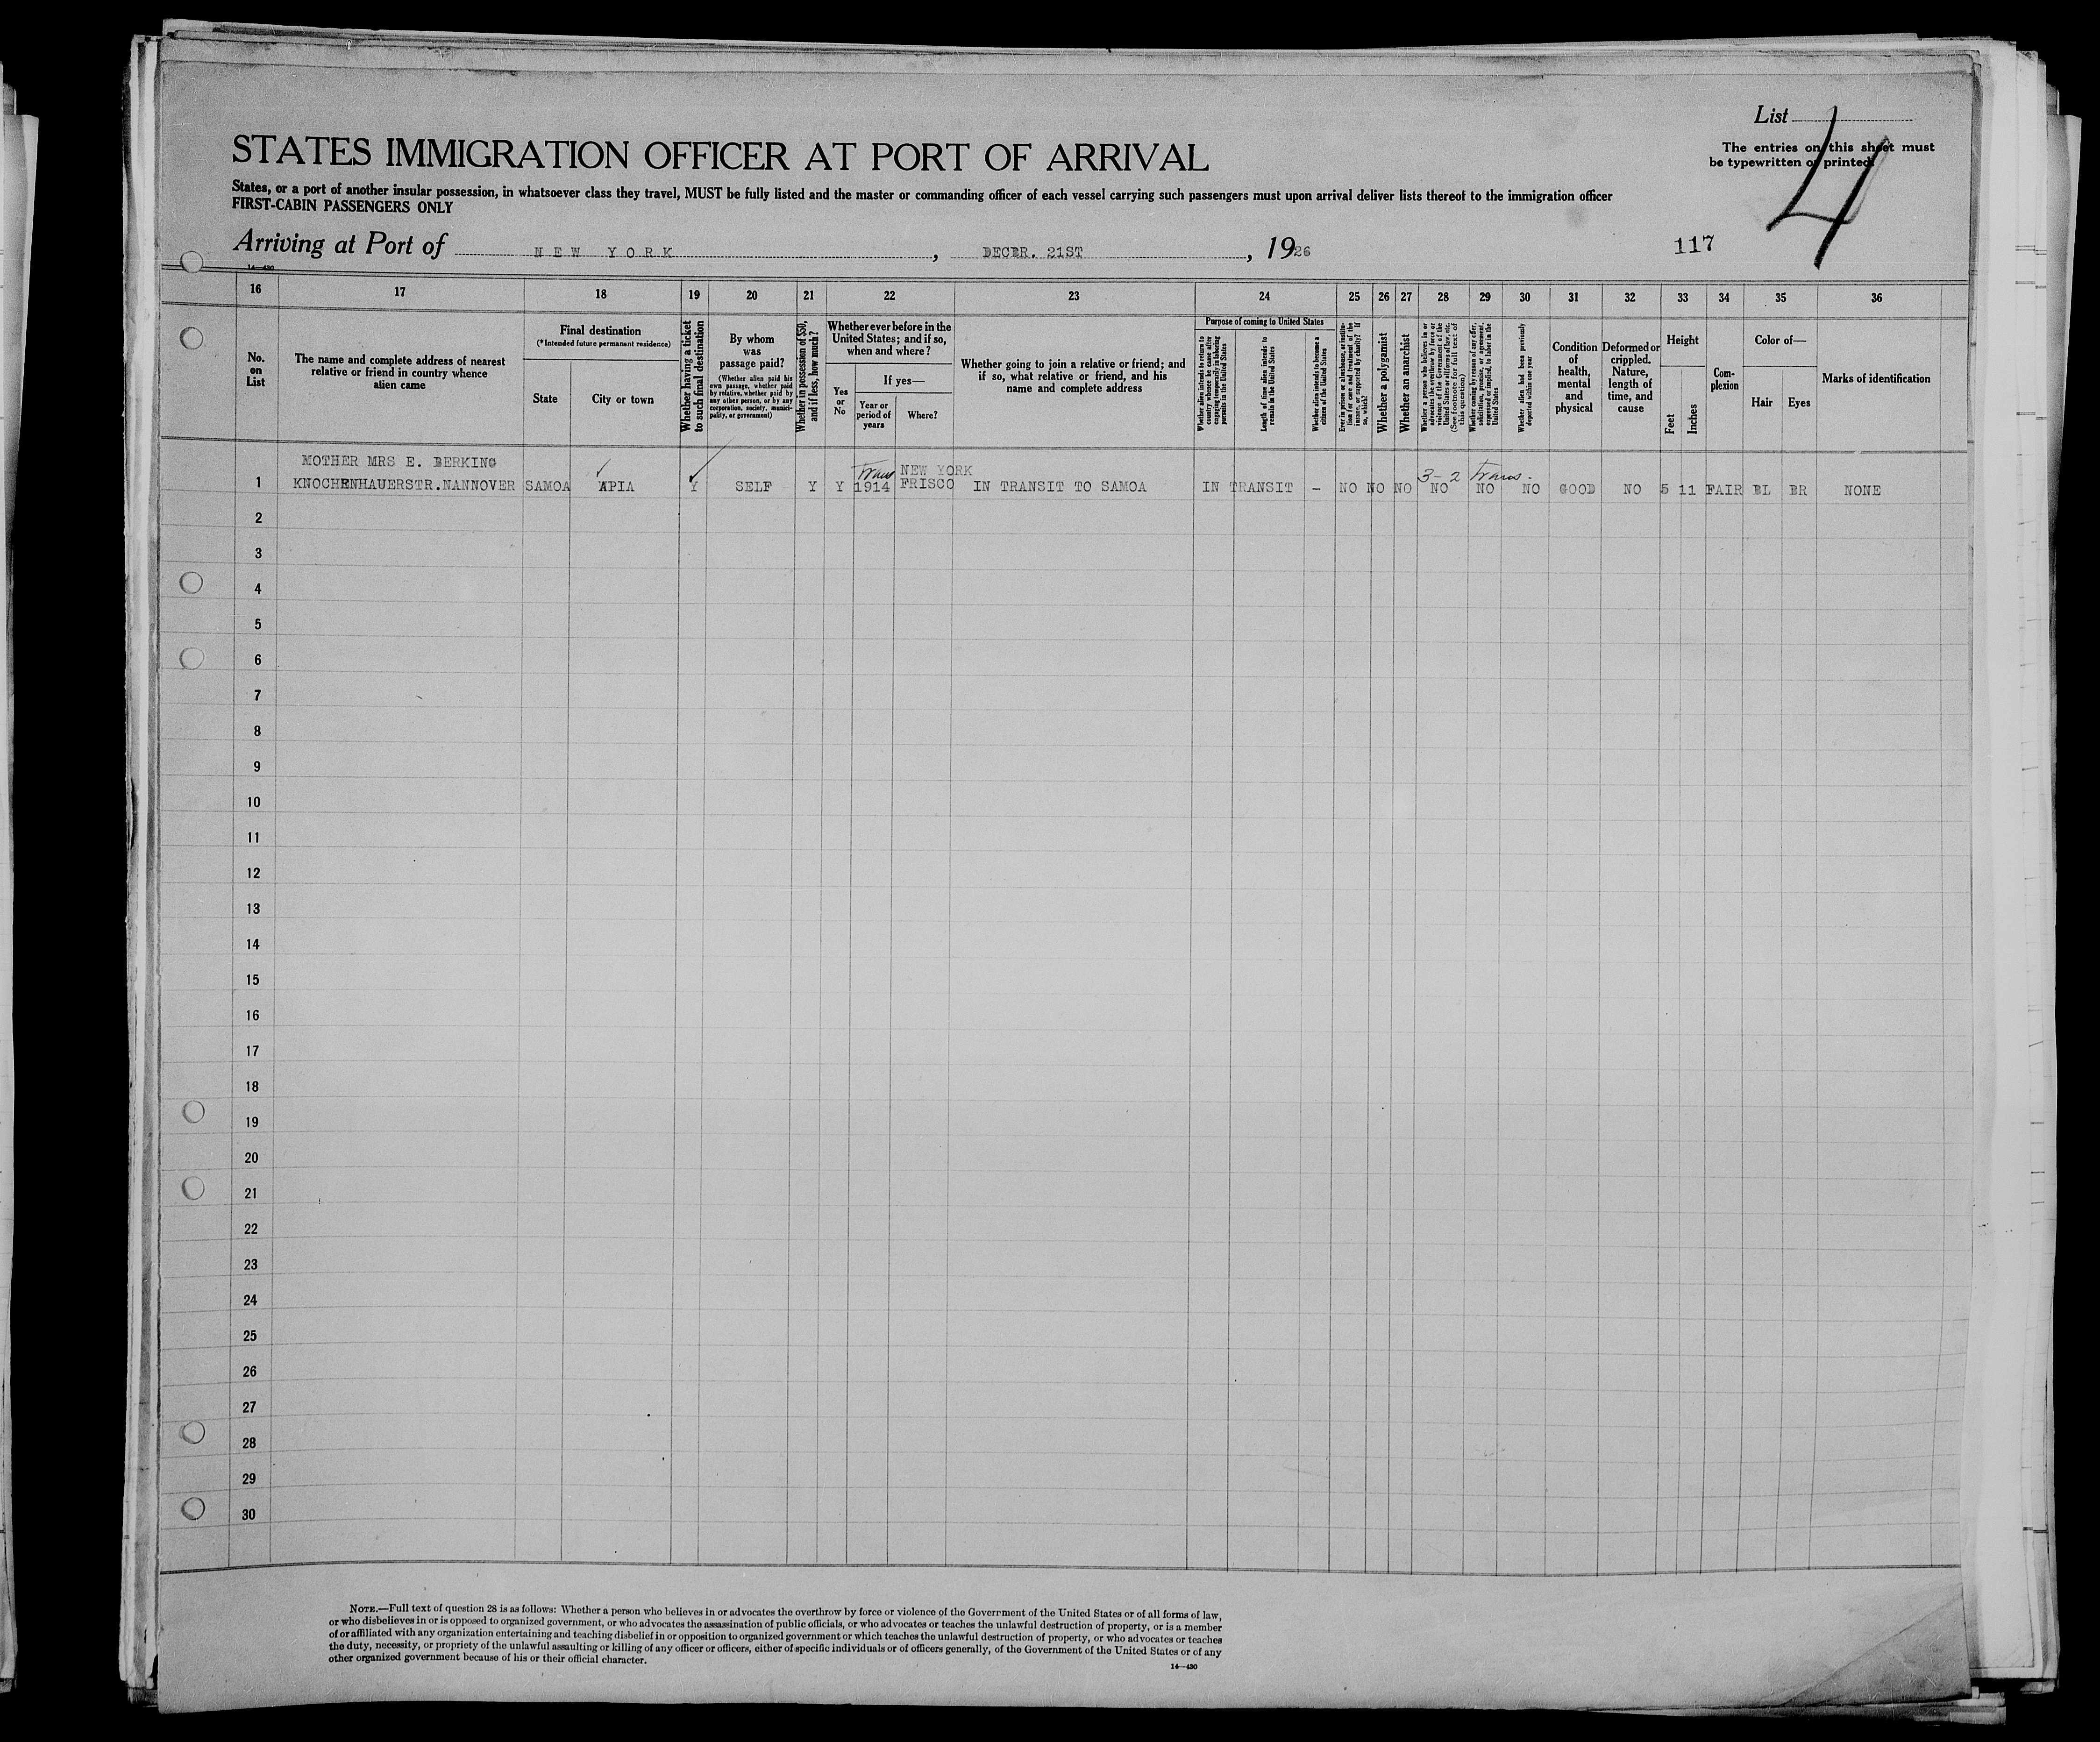 List
4
The entries on this sheet must
be typewritten or printed.
STATES IMMIGRATION OFFICER AT PORT OF ARRIVAL
States, or a port of another insular possession, in whatsoever class they travel, MUST be fully listed and the master or commanding officer of each vessel carrying such passengers must upon arrival deliver lists thereof to the immigration officer
FIRST-CABIN PASSENGERS ONLY
Arriving at Port of NEW YORK, DECBR. 21ST, 1926
117
14—430
16 17 18 19 20 21 22 23 24 25 26 27 28 29 30 31 32 33 34 35 36
No.
on
List
The name and complete address of nearest
relative or friend in country whence
alien came
Final destination
(*Intended future permanent residence)
State
City or town
Whether having a ticket
to such final destination
By whom
was
passage paid?
(Whether alien paid his
own passage, whether paid
by relative, whether paid by
any other person, or by any
corporation, society, munici-
pality, or government)
Whether in possession of $50,
and if less, how much?
Whether ever before in the
United States; and if so,
when and where?
Yes
or
No
If yes—
Year or
period of
years
Where?
Whether going to join a relative or friend; and
if so, what relative or friend, and his
name and complete address
Purpose of coming to United States
Whether alien intends to return to
country whence he came after
engaging temporarily in laboring
pursuits in the United States
Length of time alien intends to
remain in the United States
Whether alien intends to become a
citizen of the United States
Ever in prison or almshouse, or institu-
tion for care and treatment of the
insane, or supported by charity? If
so, which?
Whether a polygamist
Whether an anarchist
Whether a person who believes in or
advocates the overthrow by force or
violence of the Government of the
United States or all forms of law, etc.
(See footnote for full text of
this question)
Whether coming by reason of any offer,
solicitation, promise, or agreement,
expressed or implied, to labor in the
United States
Whether alien had been previously
deported within one year
Condition
of
health,
mental
and
physical
Deformed or
crippled.
Nature,
length of
time, and
cause
Height
Feet
Inches
Com-
plexion
Color of—
Hair
Eyes
Marks of identification
MOTHER MRS E. BERKING Trans NEW YORK 3-2 Trans.
1 KNOCHENHAUERSTR.NANNOVER SAMOA APIA Y SELF Y Y 1914 FRISCO IN TRANSIT TO SAMOA IN TRANSIT - NO NO NO NO NO NO GOOD NO 5 11 FAIR BL BR NONE
2
3
4
5
6
7
8
9
10
11
12
13
14
15
16
17
18
19
20
21
22
23
24
25
26
27
28
29
30
NOTE.—Full text of question 28 is as follows: Whether a person who believes in or advocates the overthrow by force or violence of the Government of the United States or of all forms of law,
or who disbelieves in or is opposed to organized government, or who advocates the assassination of public officials, or who advocates or teaches the unlawful destruction of property, or is a member
of or affiliated with any organization entertaining and teaching disbelief in or opposition to organized government or which teaches the unlawful destruction of property, or who advocates or teaches
the duty, necessity, or propriety of the unlawful assaulting or killing of any officer or officers, either of specific individuals or of officers generally, of the Government of the United States or of any
other organized government because of his or their official character.
14—430